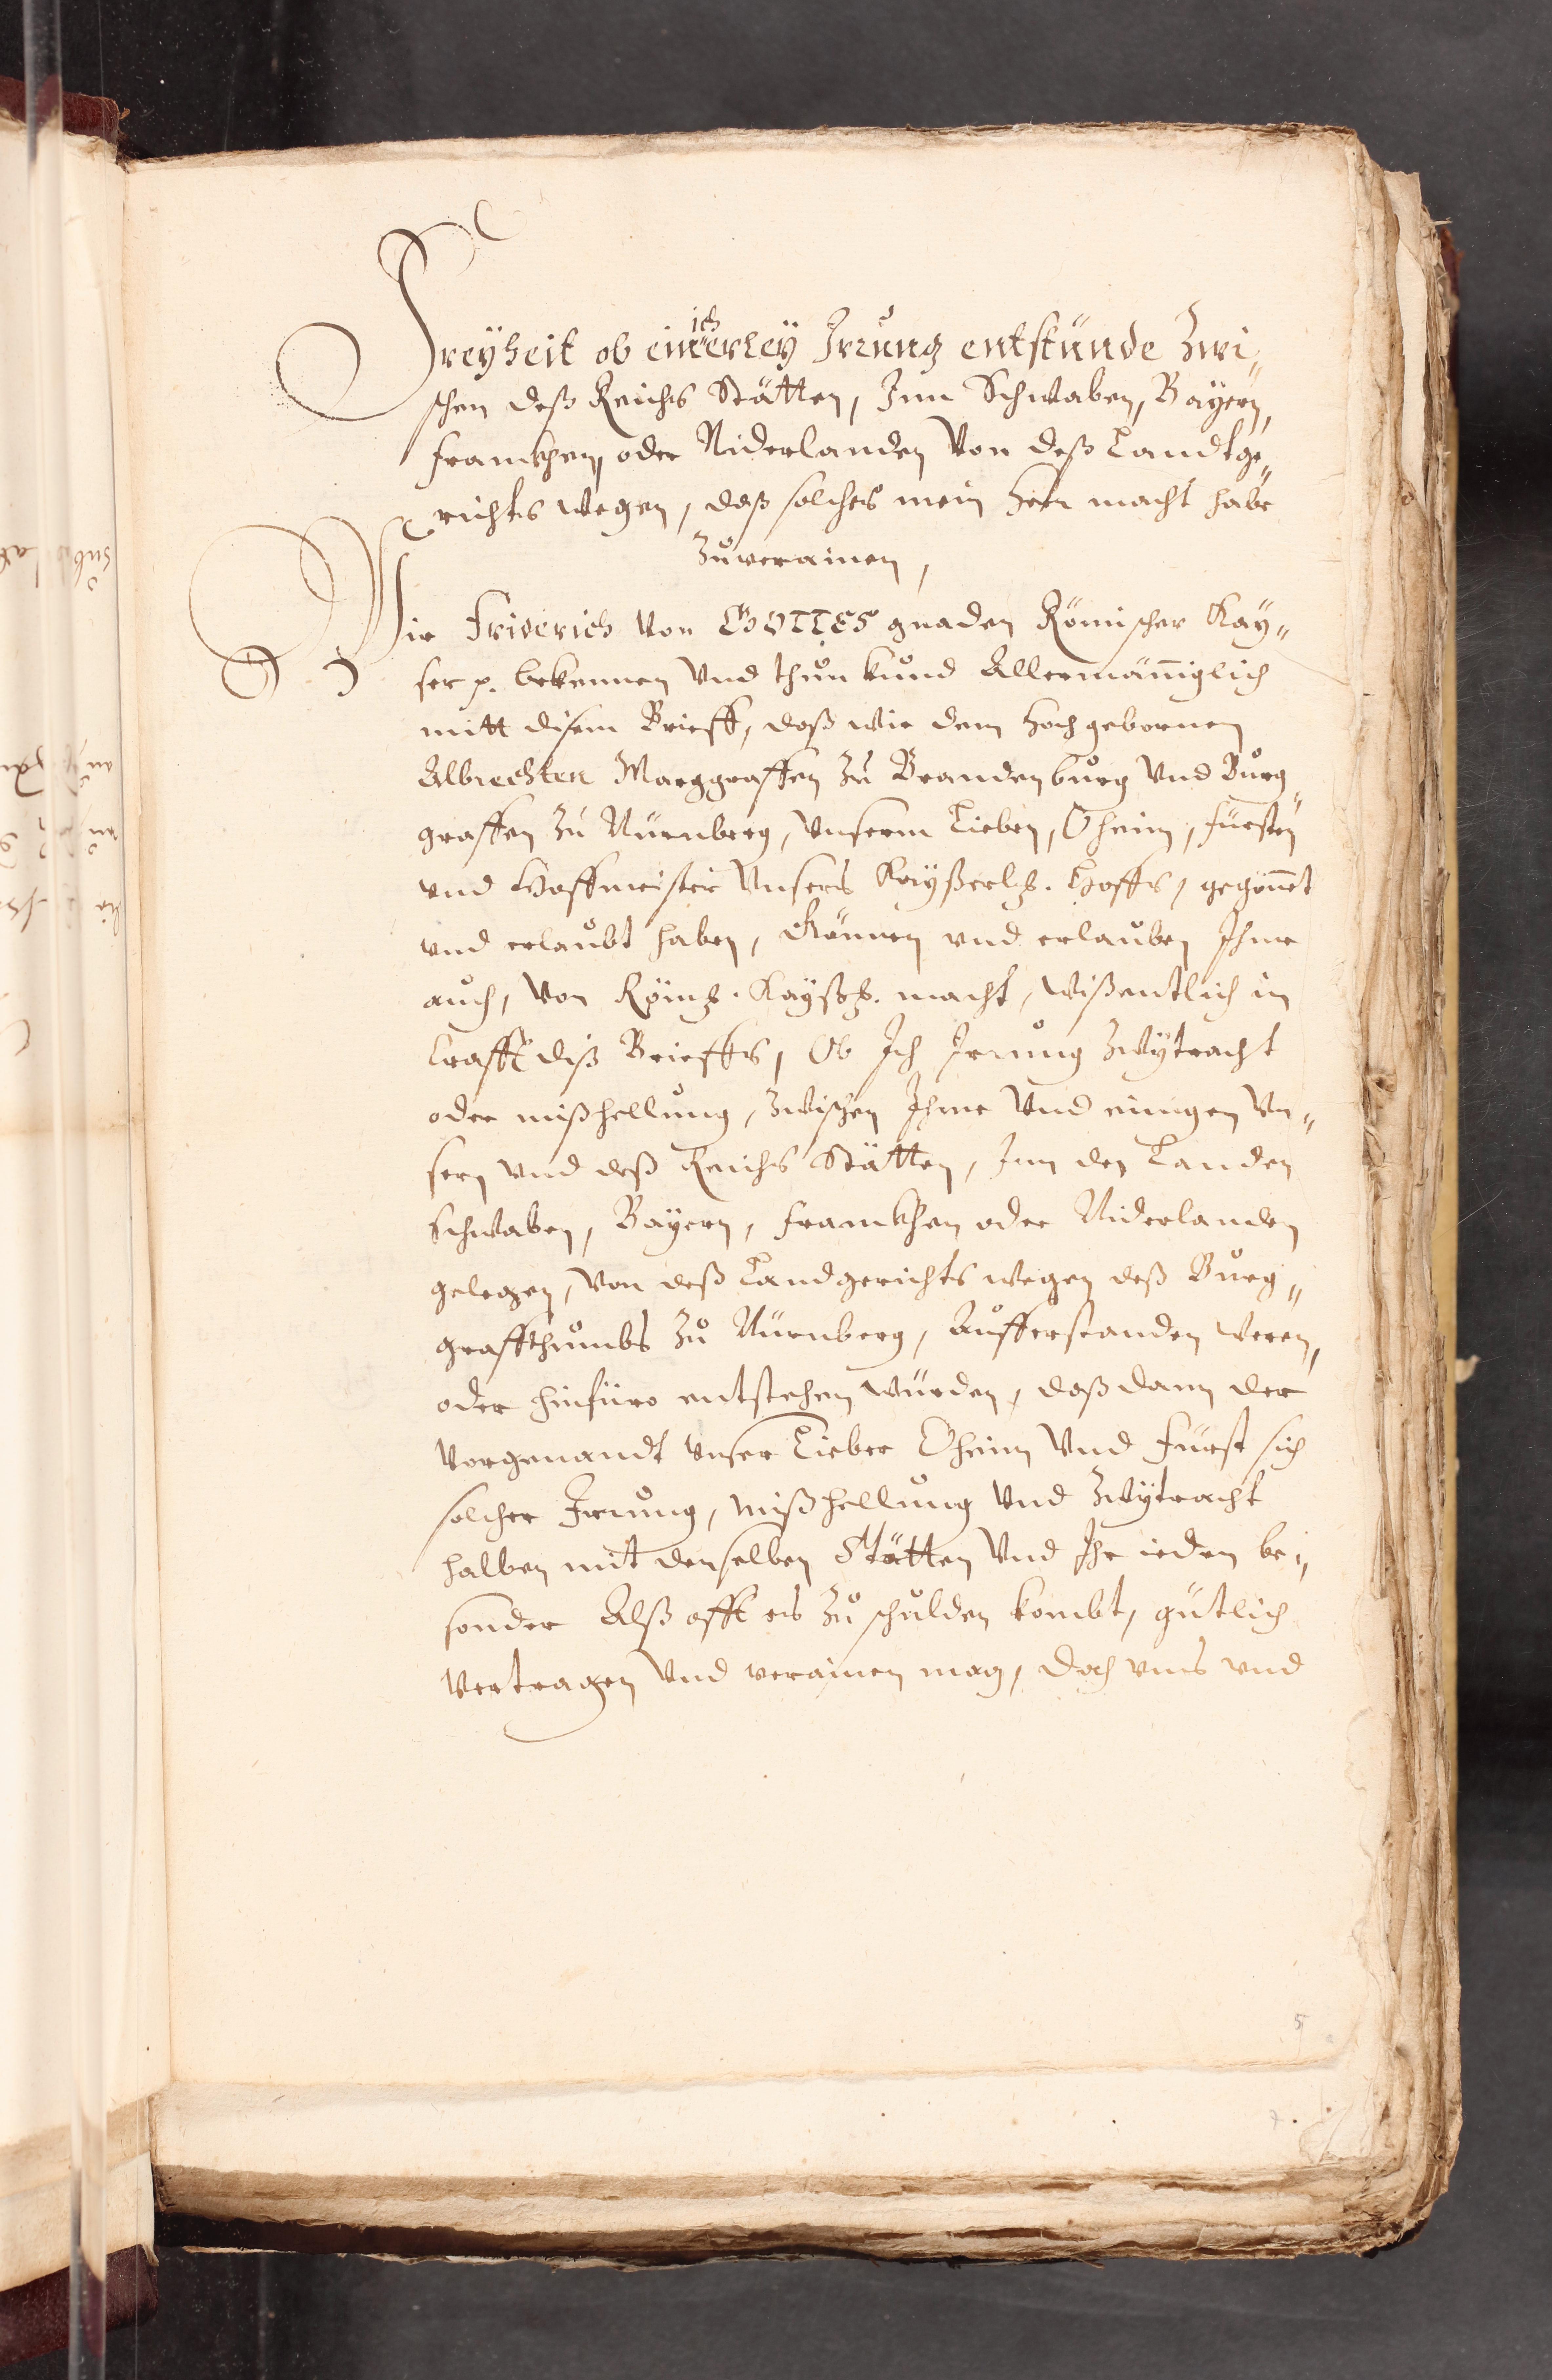 Freyheit ob einicherley Irrung entstünde Zwi„
schen deß Reichs Stätten, Inn Schwaben, Bayern,
Franckhen, oder Niderlanden Von deß Landtge„
richts wegen, daß solches mein Herr macht habe
Zuverainen,
Wir Friderich Von GOTTES gnaden Römischer Kay„
ser p. bekennen Vnd thun kund Allermänniglich
mitt disem Brieff, daß wir dem Hochgebornen
Albrechten Marggraffen Zu Brandenburg Vnd Burg„
graffen Zu Nürnberg, Vnserm Lieben, Oheim, Fürsten
vnd Hoffmeister Vnsers Kayßerlh. Hoffs, gegönnet
vnd erlaubt haben, Gönnen vnd erlauben Ihme
auch, Von Römh. Kayßh. macht, wißentlich in
Crafft diß Brieffs, Ob Ich Irrung Zwytracht
oder mißhellung, Zwischen Ihme Vnd einigen Vn„
sern Vnd deß Reichs Stätten, Inn den Landen
Schwaben, Bayern, Franckhen oder Niderlanden
gelegen, Von deß Landgerichts wegen deß Burg„
graffthumbs Zu Nürnberg, Aufferstanden weren,
oder hinfüro entstehen würden, daß dann der
Vorgenandt Vnser Lieber Oheim Vnd Fürst sich
solcher Irrung, Mißhellung Vnd Zwytracht
halben mit denselben Stätten Vnd Ihr ieden be„
sonder Alß offt es Zu schulden kombt, gütlich
Vertragen Vnd verainen mag, doch vnns vnd
5
7.